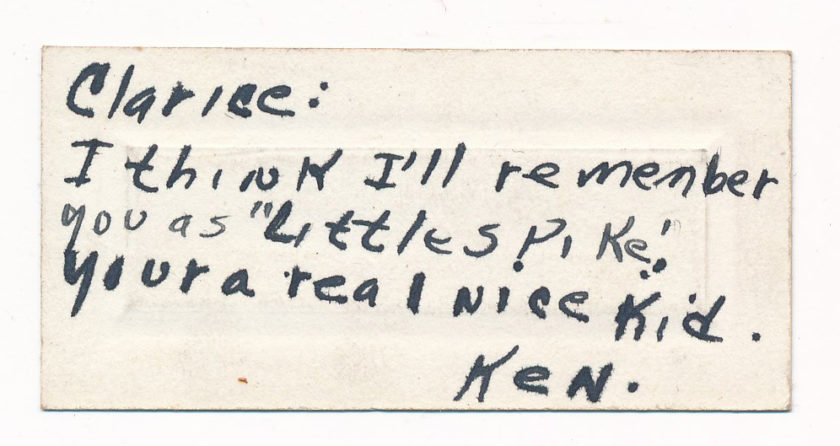 Clarice:
I think I'll remember
you as "Little Spike".
your a real nice Kid.
Ken.